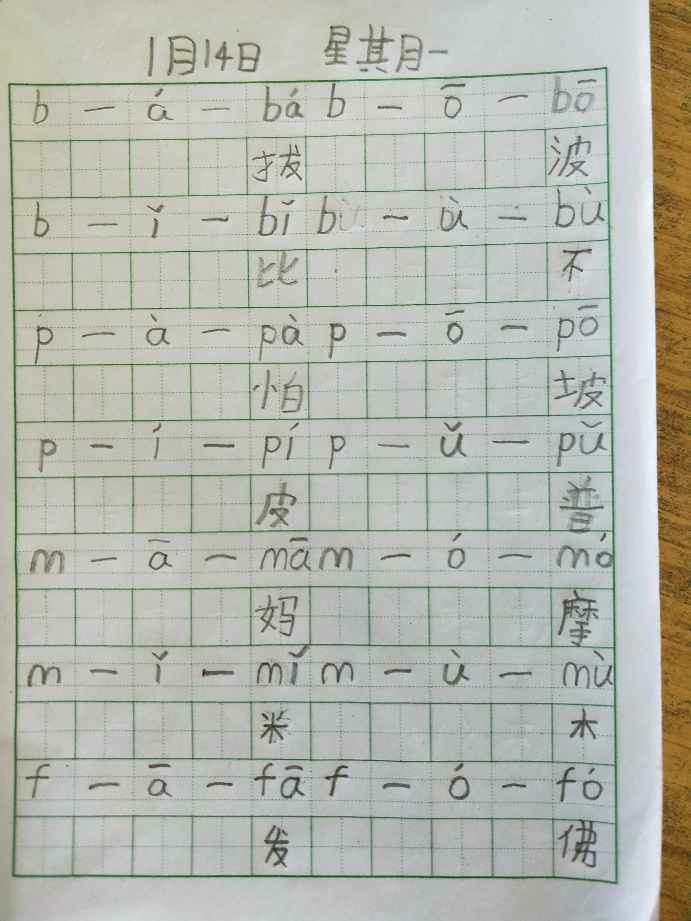 1月14日 星其月一
b — á — bá b — ō — bō
拔 波
b — ǐ — bǐ b — ù — bù
比 不
p — à — pà p — ō — pō
怕 坡
p — í — pí p — ǔ — pǔ
皮 普
m — ā — mā m — ó — mó
妈 摩
m — ǐ — mǐ m — ù — mù
米 木
f — ā — fā f — ó — fó
发 佛